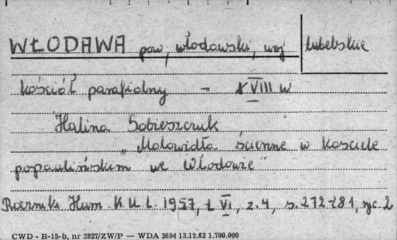 WŁODAWA pow, włodawski, woj lubelskie
kościół parafialny - XVIII w
Halina Sobieszczuk,
"Malowidła scienne w kościele
popaulińskim we Włodawie"
Rocznik. Hum. K.U.L. 1957, t VI, z. 4, s. 272-281, ryc. 2
CWD - B-15-b, nr 2827/ZW/P — WDA 2694 13.12.62 1.700.000